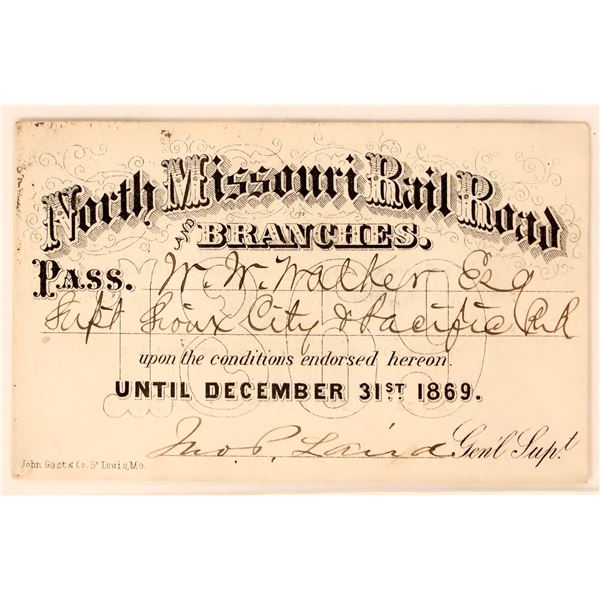 North Missouri Rail Road
AND BRANCHES.
PASS. W. W. Walker Esq
Supt Sioux City & Pacific R.R
upon the conditions endorsed hereon.
UNTIL DECEMBER 31ST 1869.
Jno. P. Laird Gen'l Supt.
John Gast & Co. St Louis, Mo.
1869